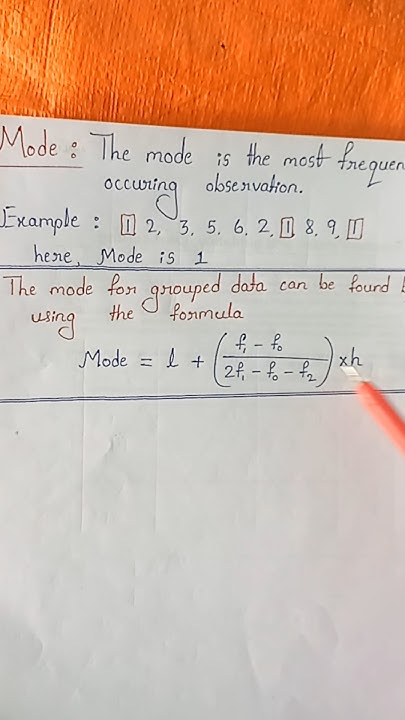 Mode : The mode is the most frequen
occuring observation.
Example : 1 2, 3, 5, 6, 2, 1 8, 9, 1
here, Mode is 1
The mode for grouped data can be found
using the formula
Mode = l + (f₁ - f₀ / 2f₁ - f₀ - f₂) × h